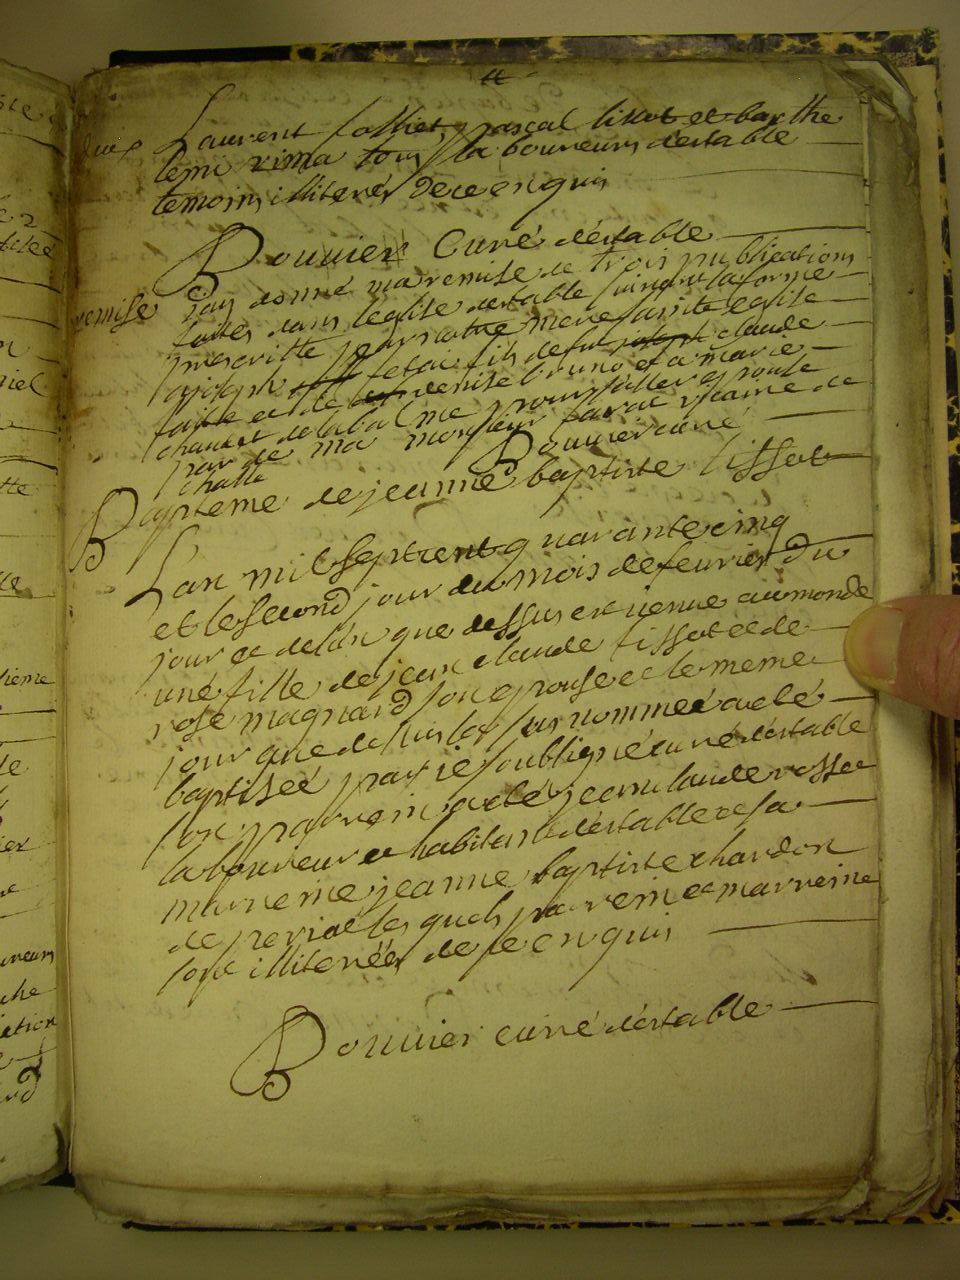 Laurent folliet, pascal lissot et barthe
lemi rima tous laboureurs destable
temoins illiterés de ce enquis
Bouvier Curé d'estable
remise jay donné ma remise de trois publications
faites dans leglise destable suivant la forme
prescritte par notre mere sainte eglise
a joseph fils de claude
et de denise bruno et a marie
chaudet de la balme pour
par de ma monsieur vicaire de
challe
Bouvier curé
Bapteme de jeanne baptiste lissot
Lan mil sept cent quarante cinq
et le second jour du mois de fevrier du
jour et de lan que dessus est venue au monde
une fille de jean claude lissot et de
rose magnard son epouse et le meme
jour que dessus les sus nommeé a eté
baptiseé par je soubsigné curé d'estable
son parrein a eté jean claude rosset
laboureur et habitant d'estable et sa
marreine jeanne baptiste chardon
de les quels parrein et marreine
sont illiterées de ce enquis
Bouvier curé d'estable